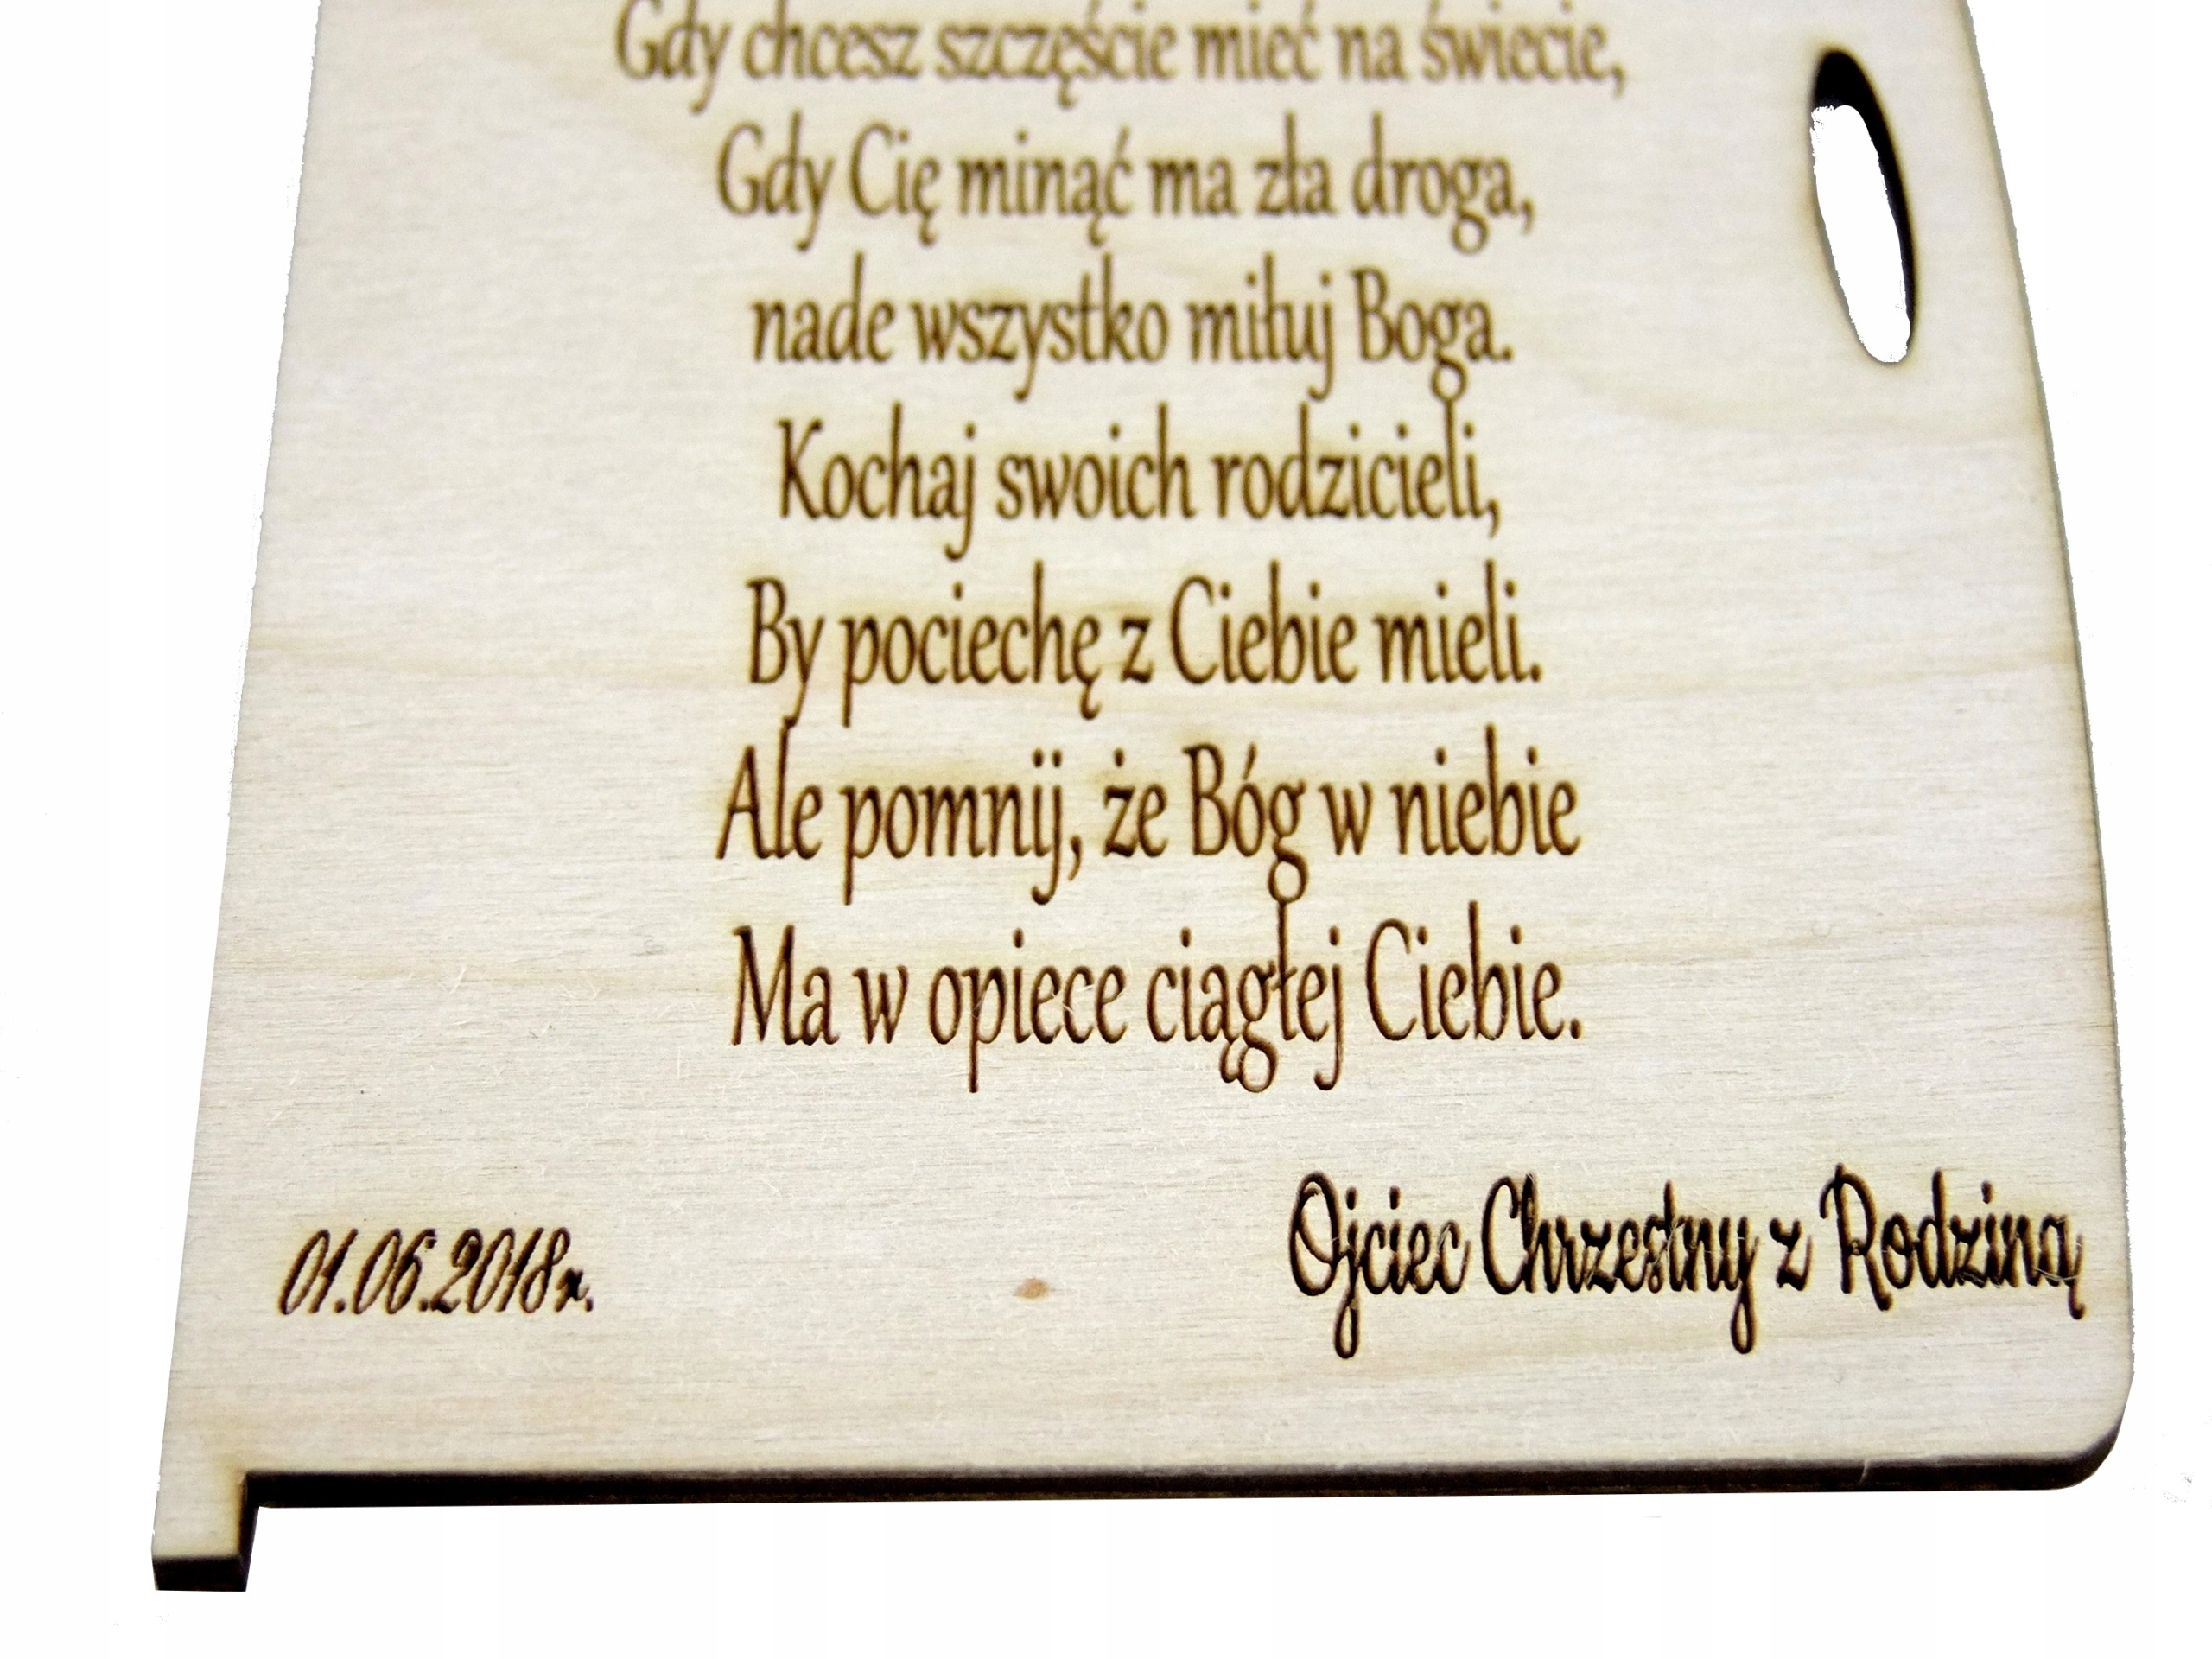 Gdy chcesz szczęście mieć na świecie,
Gdy Cię minąć ma zła droga,
nade wszystko miłuj Boga.
Kochaj swoich rodzicieli,
By pociechę z Ciebie mieli.
Ale pomnij, że Bóg w niebie
Ma w opiece ciągłej Ciebie.
01.06.2018r.
Ojciec Chrzestny z Rodziną